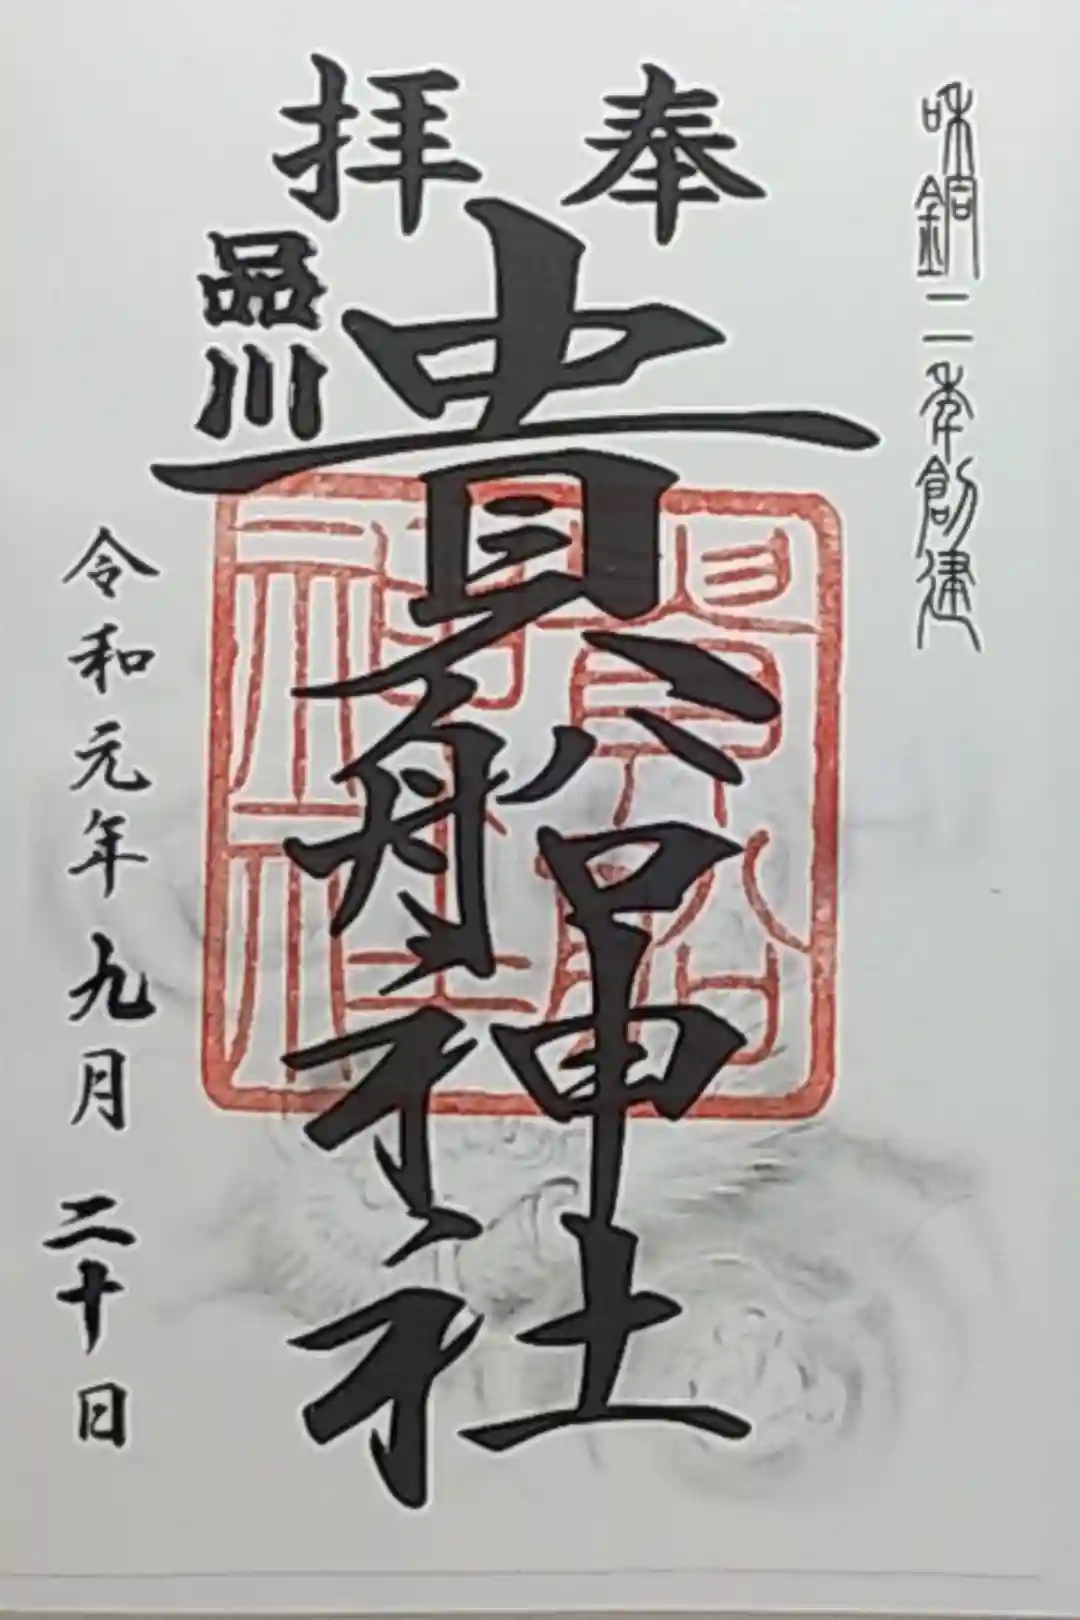 和銅二年創建
奉拝
品川
貴船神社
貴船神社
令和元年九月二十日